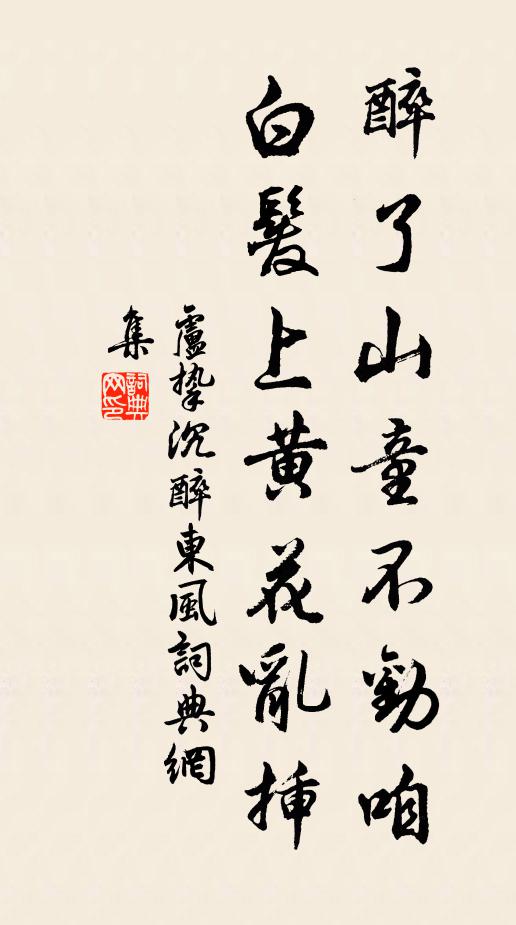 醉了山童不勸咱
白髮上黃花亂挿
盧摯沉醉東風詞典網
集
詞典網印